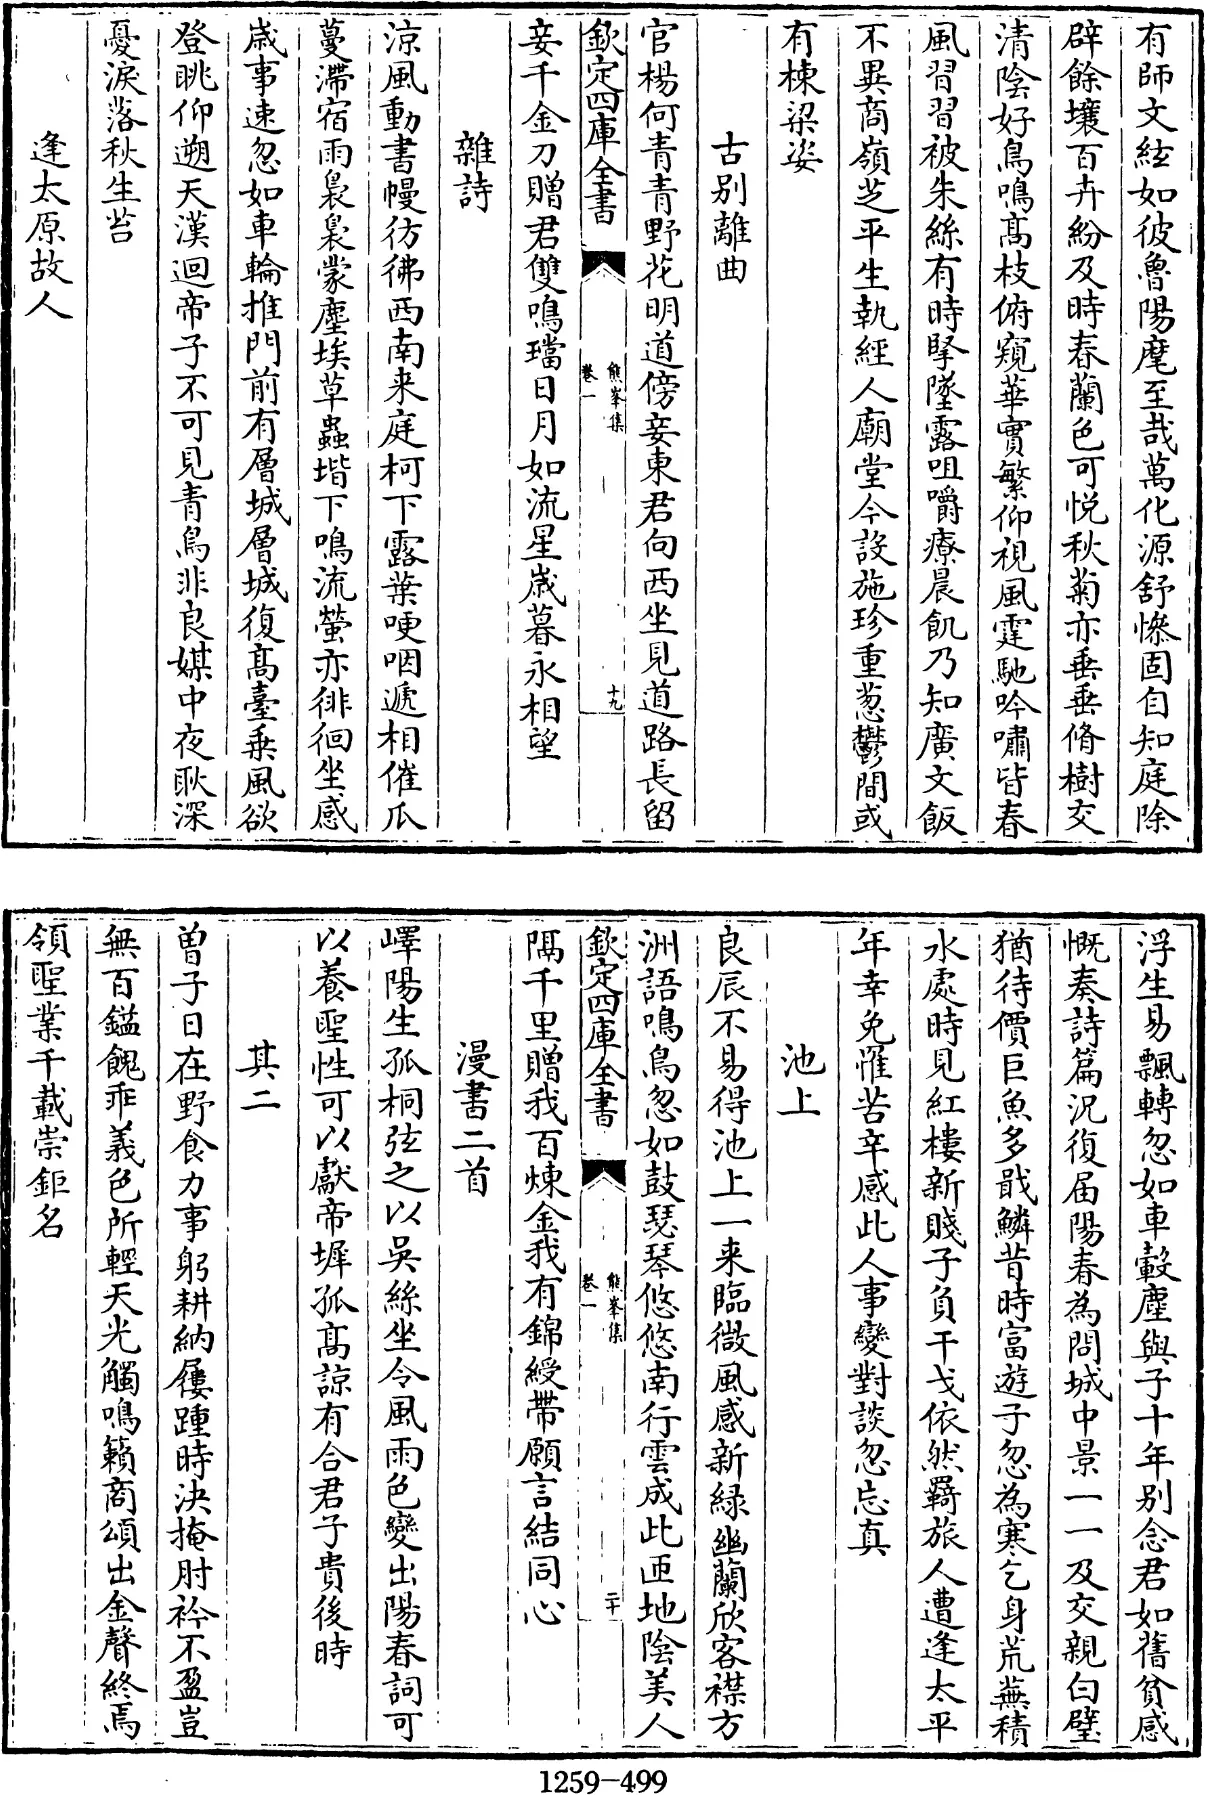 有師文絃如彼魯陽麾至哉萬化源舒慘固自知庭除
辟餘壤百卉紛及時春蘭色可悦秋菊亦垂垂脩樹交
清陰好鳥鳴髙枝俯窺華實繁仰視風霆馳吟嘯皆春
風習習被朱絲有時擥墜露咀嚼療晨飢乃知廣文飯
不異商嶺芝平生執經人廟堂今設施珍重葱鬱間或
有棟梁姿
古别離曲
官楊何青青野花明道傍妾東君向西坐見道路長留
欽定四庫全書
熊峯集
卷一
十九
妾千金刀贈君雙鳴璫日月如流星歲暮永相望
雜詩
涼風動書幔彷彿西南来庭柯下露葉哽咽遞相催瓜
蔓滯宿雨裊裊蒙塵埃草蟲堦下鳴流螢亦徘徊坐感
歲事速忽如車輪推門前有層城層城復髙臺乗風欲
登眺仰遡天漢迴帝子不可見青鳥非良媒中夜耿深
憂淚落秋生苔
逢太原故人
浮生易飄轉忽如車轂塵與子十年别念君如舊貧感
慨奏詩篇況復届陽春為問城中景一一及交親白璧
猶待價巨魚多戢鱗昔時富遊子忽為寒乞身荒蕪積
水處時見紅樓新賤子負干戈依然羇旅人遭逢太平
年幸免罹苦辛感此人事變對談忽忘真
池上
良辰不易得池上一来臨微風感新緑幽蘭欣客襟方
洲語鳴鳥忽如鼓瑟琴悠悠南行雲成此匝地陰美人
欽定四庫全書
熊峯集
卷一
二十
隔千里贈我百煉金我有錦綬帶願言結同心
漫書二首
嶧陽生孤桐弦之以吳絲坐令風雨色變出陽春詞可
以養聖性可以獻帝墀孤髙諒有合君子貴後時
其二
曽子日在野食力事躬耕納屨踵時決掩肘衿不盈豈
無百鎰餽乖義色所輕天光觸鳴籟商頌出金聲終焉
領聖業千載崇鉅名
1259-499